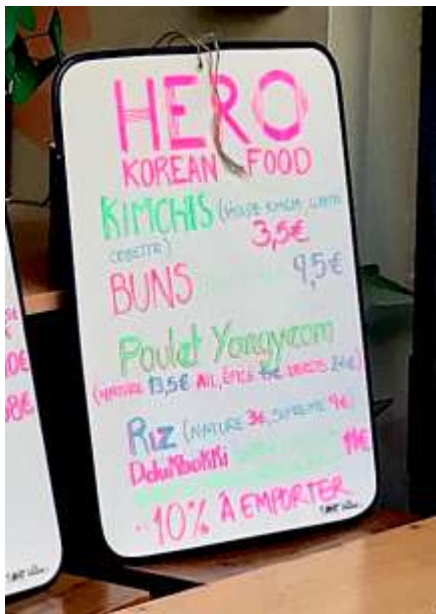 HERO
KOREAN FOOD
KIMCHIS (HOUSE KIMCHI,
CEBETTE) 3,5€
BUNS 9,5€
Poulet Yangyzom
(NATURE 13,5€ AIL, ÉPICÉ
RIZ (NATURE 3€, SUPREME 4€)
Ddukbokki 11€
-10% À EMPORTER